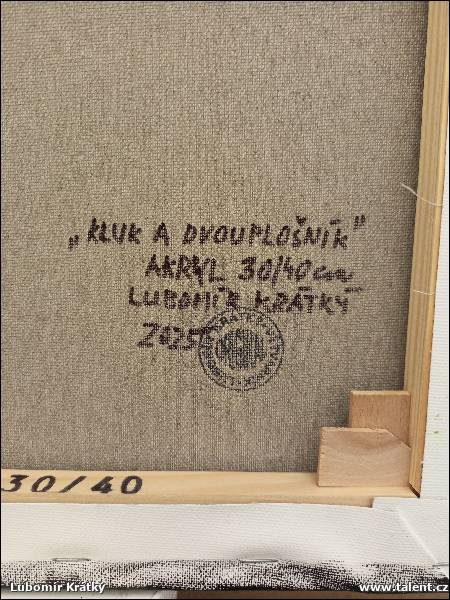 „KLUK A DVOUPLOŠNÍK"
AKRYL 30/40 cm
LUBOMÍR KRÁTKÝ
2025
30/40
Lubomír Krátký
www.talent.cz